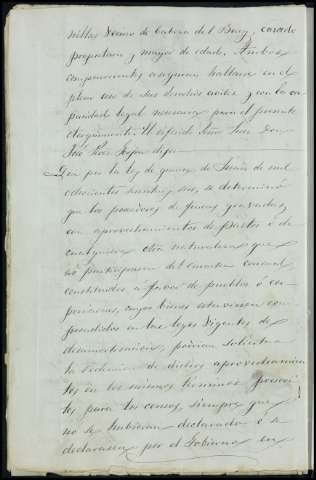 vecino de Cabeza del Buey, casado
propietario y mayor de edad. Ambos
comparecientes aseguran hallarse en el
pleno uso de sus derechos civiles y con la ca-
pacidad legal necesaria para el presente
otorgamiento. El referido Señor Juez Don
José dijo
Que por la ley de quince de Junio de mil
ochocientos sesenta y seis, se determinó
que los poseedores de fincas gravadas
con aprovechamientos de pastos ó de
cualquiera otra naturaleza que
no participasen del caracter censual
constituidos a favor de pueblos ó cor-
poraciones, cuyos bienes estuviesen com-
prendidos en las leyes vigentes de
desamortización, podrian solicitar
la redencion de dichos aprovechamien-
tos en los mismos terminos prescri-
tos para los censos, siempre que
no se hubieran declarado ó se
declarasen por el Gobierno en